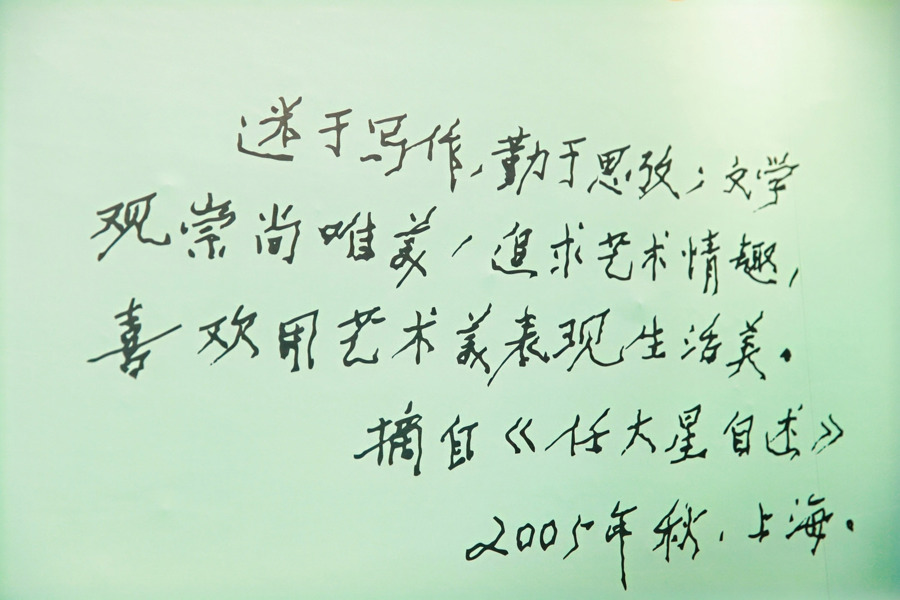 迷于写作,勤于思考;文学
观崇尚唯美,追求艺术情趣,
喜欢用艺术美表现生活美.
摘自《任大星自述》
2005年秋.上海.